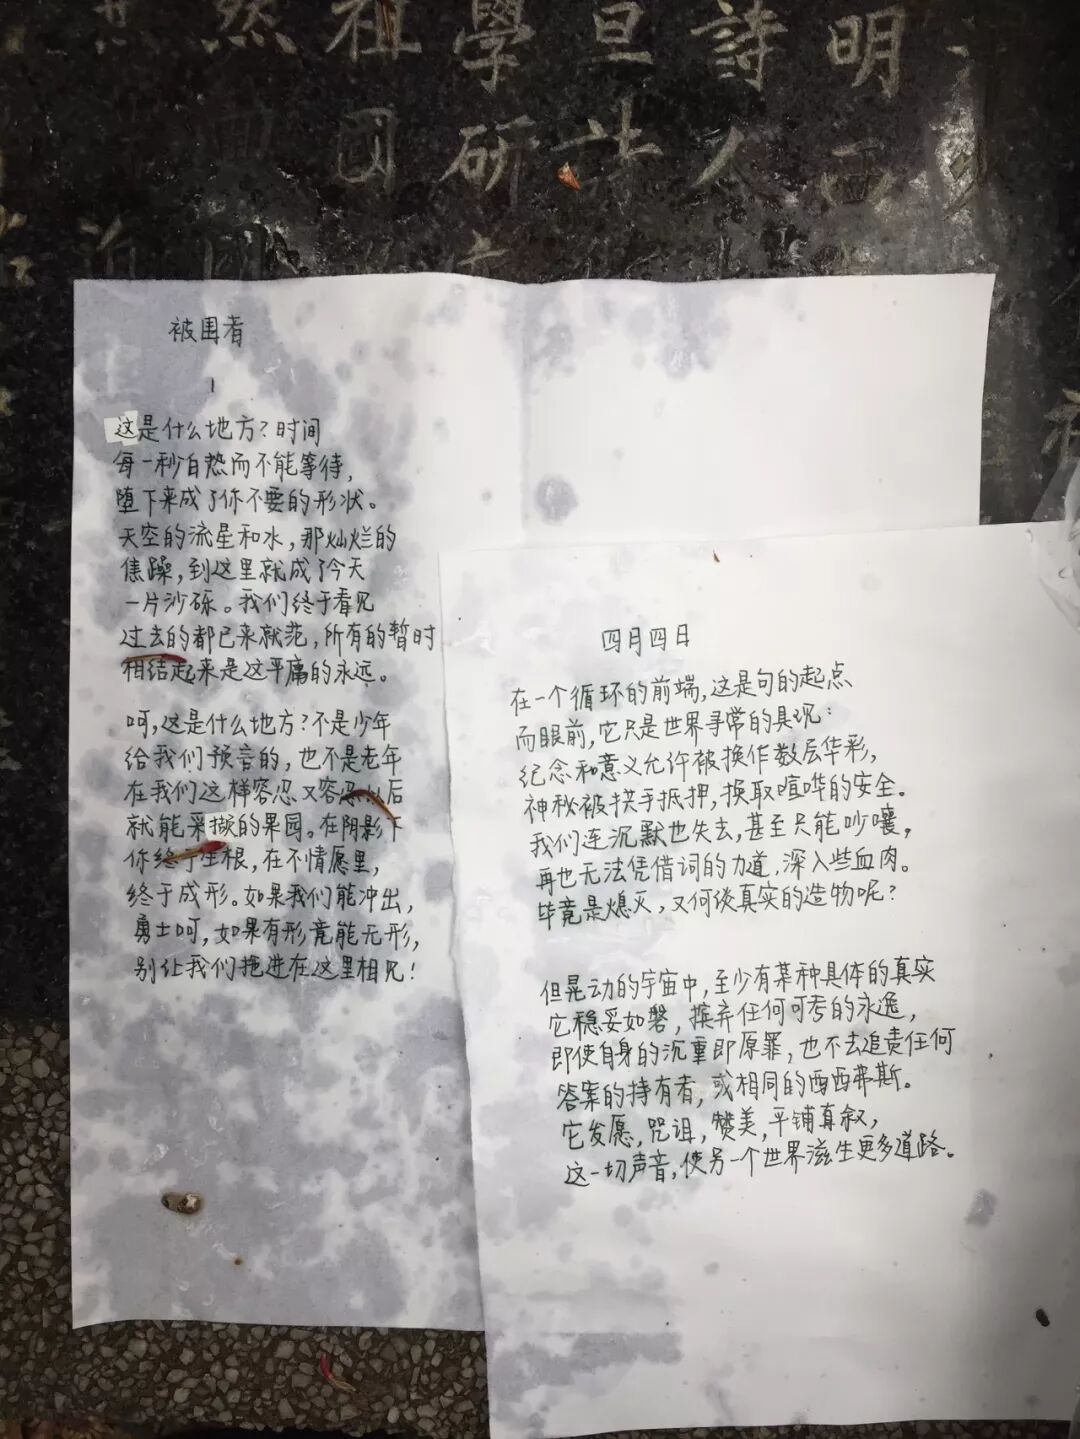 然祖學旦詩明
國研社人西
被围者
1
这是什么地方？时间
每一秒白热而不能等待，
堕下来成了你不要的形状。
天空的流星和水，那灿烂的
焦躁，到这里就成了今天
一片沙砾。我们终于看见
过去的都已来就范，所有的暂时
相结起来是这平庸的永远。
呵，这是什么地方？不是少年
给我们预言的，也不是老年
在我们这样容忍又容忍以后
就能采撷的果园。在阴影下
你终于生根，在不情愿里，
终于成形。如果我们能冲出，
勇士呵，如果有形竟能无形，
别让我们拖进在这里相见！
四月四日
在一个循环的前端，这是句的起点
而眼前，它只是世界寻常的具现：
纪念和意义允许被换作数层华彩，
神秘被拱手抵押，换取喧哗的安全。
我们连沉默也失去，甚至只能吵嚷，
再也无法凭借词的力道，深入些血肉。
毕竟是熄灭，又何谈真实的造物呢？
但晃动的宇宙中，至少有某种具体的真实
它稳妥如磐，摈弃任何可考的永远，
即使自身的沉重即原罪，也不去追责任何
答案的持有者，或相同的西西弗斯。
它发愿，咒诅，赞美，平铺真叙，
这一切声音，使另一个世界滋生更多道路。